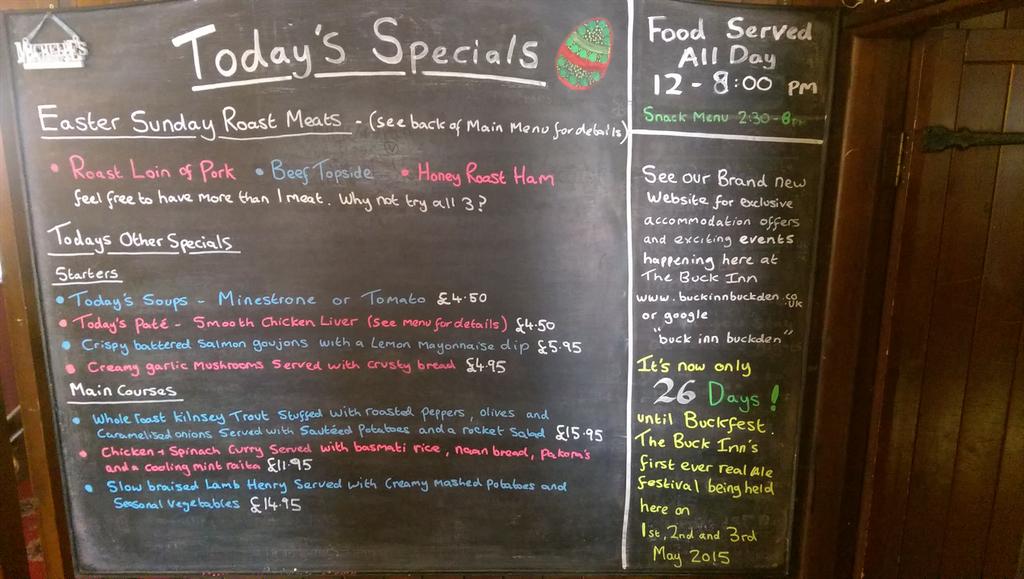 MICHELLE'S
Today's Specials
Easter Sunday Roast Meats - (see back of Main Menu for details)
• Roast Loin of Pork • Beef Topside • Honey Roast Ham
feel free to have more than 1 meat. Why not try all 3?
Todays Other Specials
Starters
• Today's Soups - Minestrone or Tomato £4.50
• Today's Paté - Smooth Chicken Liver (see menu for details) £4.50
• Crispy battered Salmon goujons with a Lemon Mayonnaise dip £5.95
• Creamy garlic Mushrooms Served with crusty bread £4.95
Main Courses
• Whole roast Kilnsey Trout Stuffed with roasted peppers, olives and
Caramelised onions Served with Sautéed Potatoes and a rocket Salad £15.95
• Chicken + Spinach Curry Served with basmati rice, naan bread, Pakora's
and a cooling mint raita £11.95
• Slow braised Lamb Henry Served with Creamy Mashed Potatoes and
Seasonal Vegetables £14.95
Food Served
All Day
12 - 8:00 pm
Snack Menu 2:30-8pm
See our Brand new
Website for exclusive
accommodation offers
and exciting events
happening here at
The Buck Inn
www.buckinnbuckden.co.uk
or google
"buck inn buckden"
It's now only
26 Days!
until Buckfest.
The Buck Inn's
first ever real Ale
festival being held
here on
1st, 2nd and 3rd
May 2015